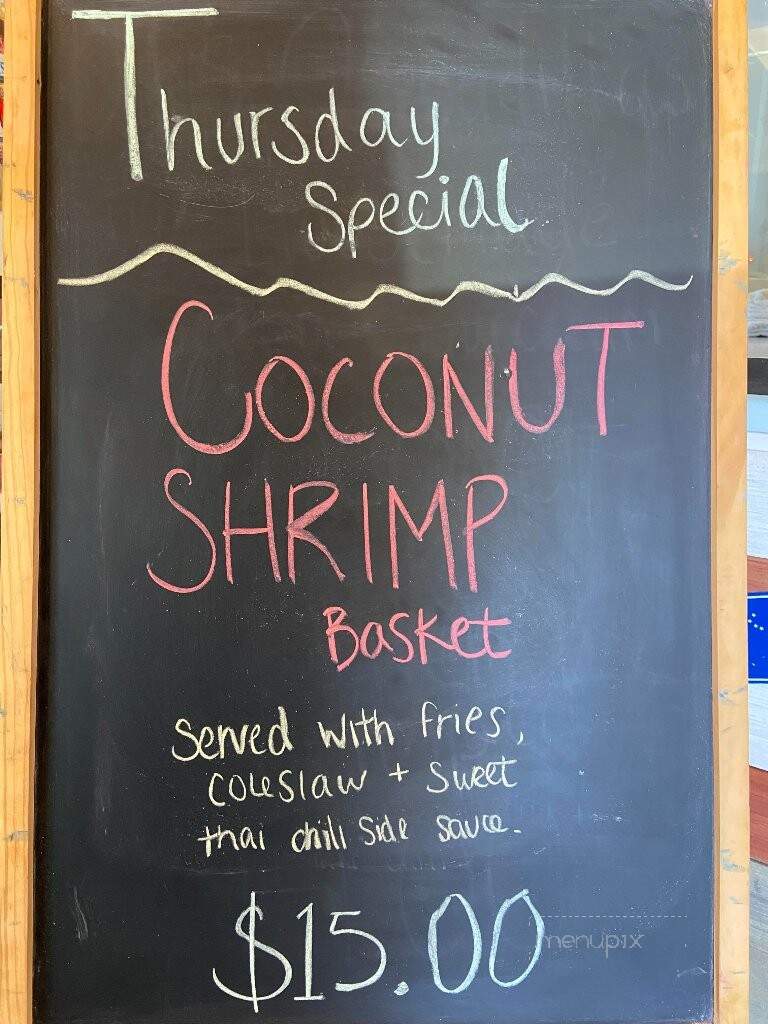 Thursday
Special
COCONUT
SHRIMP
Basket
Served with fries,
coleslaw + sweet
thai chili side sauce.
$15.00
menupix